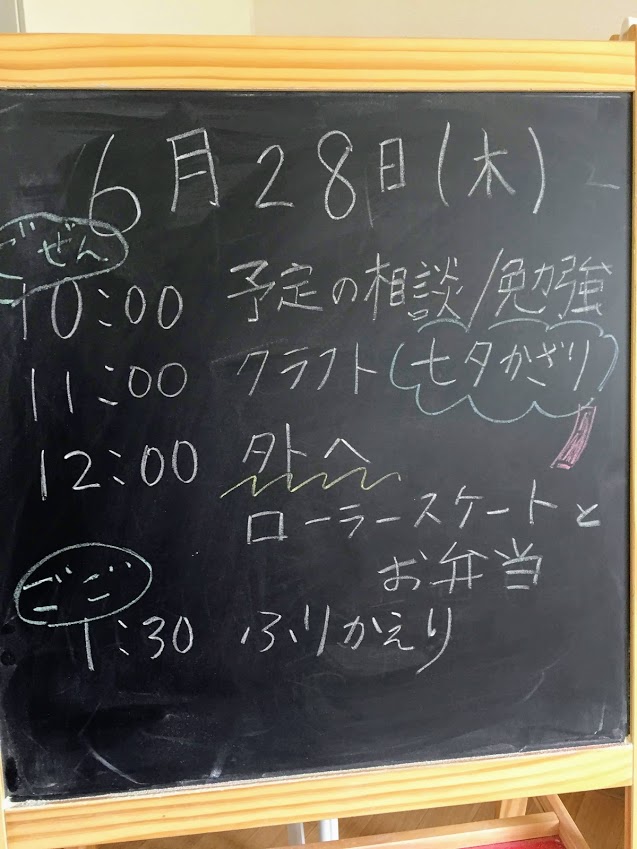 6月28日(木)
ごぜん
10:00 予定の相談/勉強
11:00 クラフト(七夕かざり)
12:00 外へ
ローラースケートと
お弁当
ごご
1:30 ふりかえり